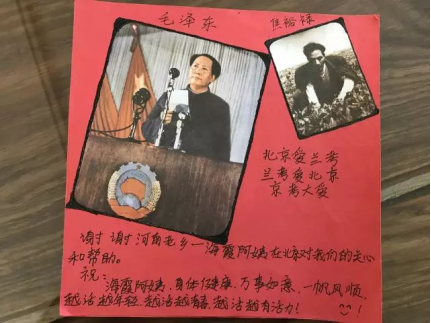 毛泽东
焦裕禄
北京爱兰考
兰考爱北京
京考大爱
谢谢河南老乡—海霞阿姨在北京对我们的关心
和帮助。
祝：
海霞阿姨，身体健康，万事如意，一帆风顺，
越活越年轻，越活越有喜，越活越有活力！